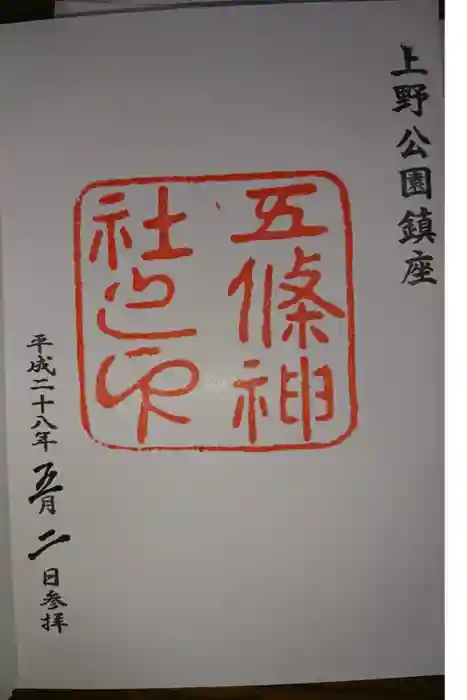 上野公園鎮座
五條神
社之印
平成二十八年五月二日参拝